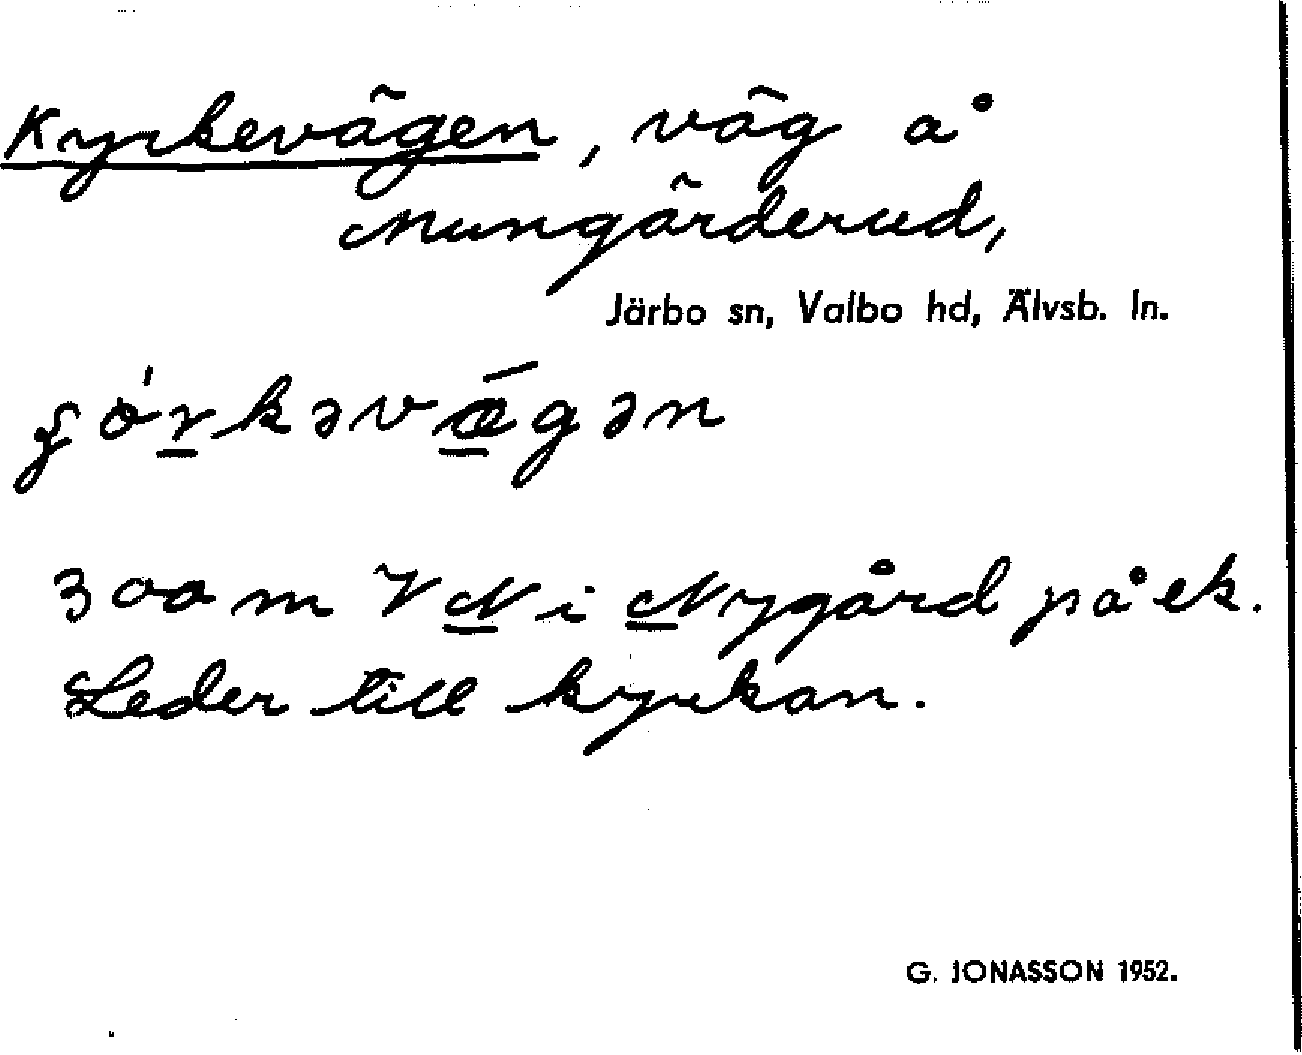 Kyrkevägen, väg å
Mungärderud,
Järbo sn, Valbo hd, Älvsb. ln.
300 m V N i Nygård på ek.
Leder till kyrkan.
G. JONASSON 1952.